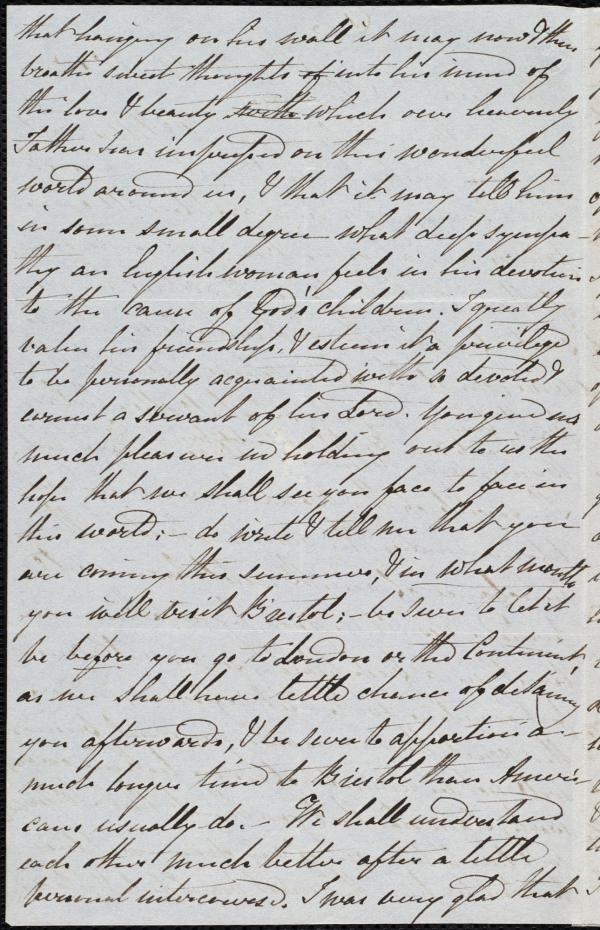 that hanging on his wall it may now & then
breathe sweet thoughts of into his mind of
the love & beauty with which our heavenly
Father has impressed on this wonderful
world around us, & that it may tell him
in some small degree what deep sympa-
thy an Englishwoman feels in his devotion
to the cause of God's children. I greatly
value his friendship, & esteem it a privilege
to be personally acquainted with so devoted &
earnest a servant of his Lord. You give us
much pleasure in holding out to us the
hope that we shall see you face to face in
this world; – do write & tell me that you
are coming this summer, & in what month
you will visit Bristol; – be sure to let it
be before you go to London or the Continent,
as we shall have little chance of detaining
you afterwards, & be sure to apportion a
much longer time to Bristol than Ameri-
cans usually do. – We shall understand
each other much better after a little
personal intercourse. I was very glad that